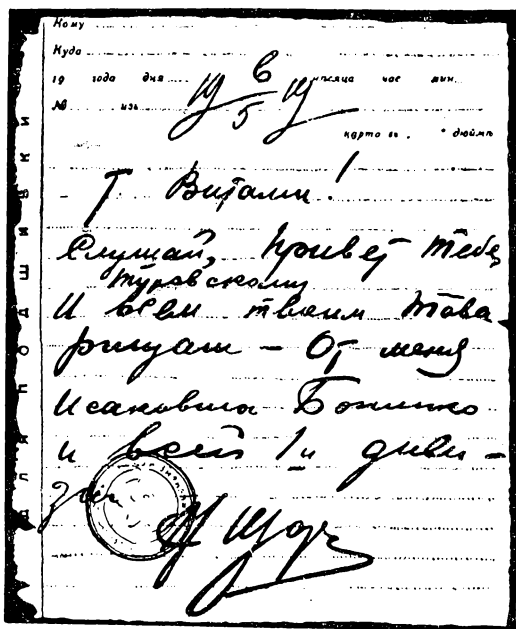 Кому
Куда
19 года дня месяца час мин.
№ изъ
6
5
карта въ дюймѣ
Т Виталий!
Слушай, привет тебе,
Туровскому
И всем твоим това-
рищам – От меня
Исаковича Боженко
и всей 1й диви-
зии
Н Щорс
для подшивки